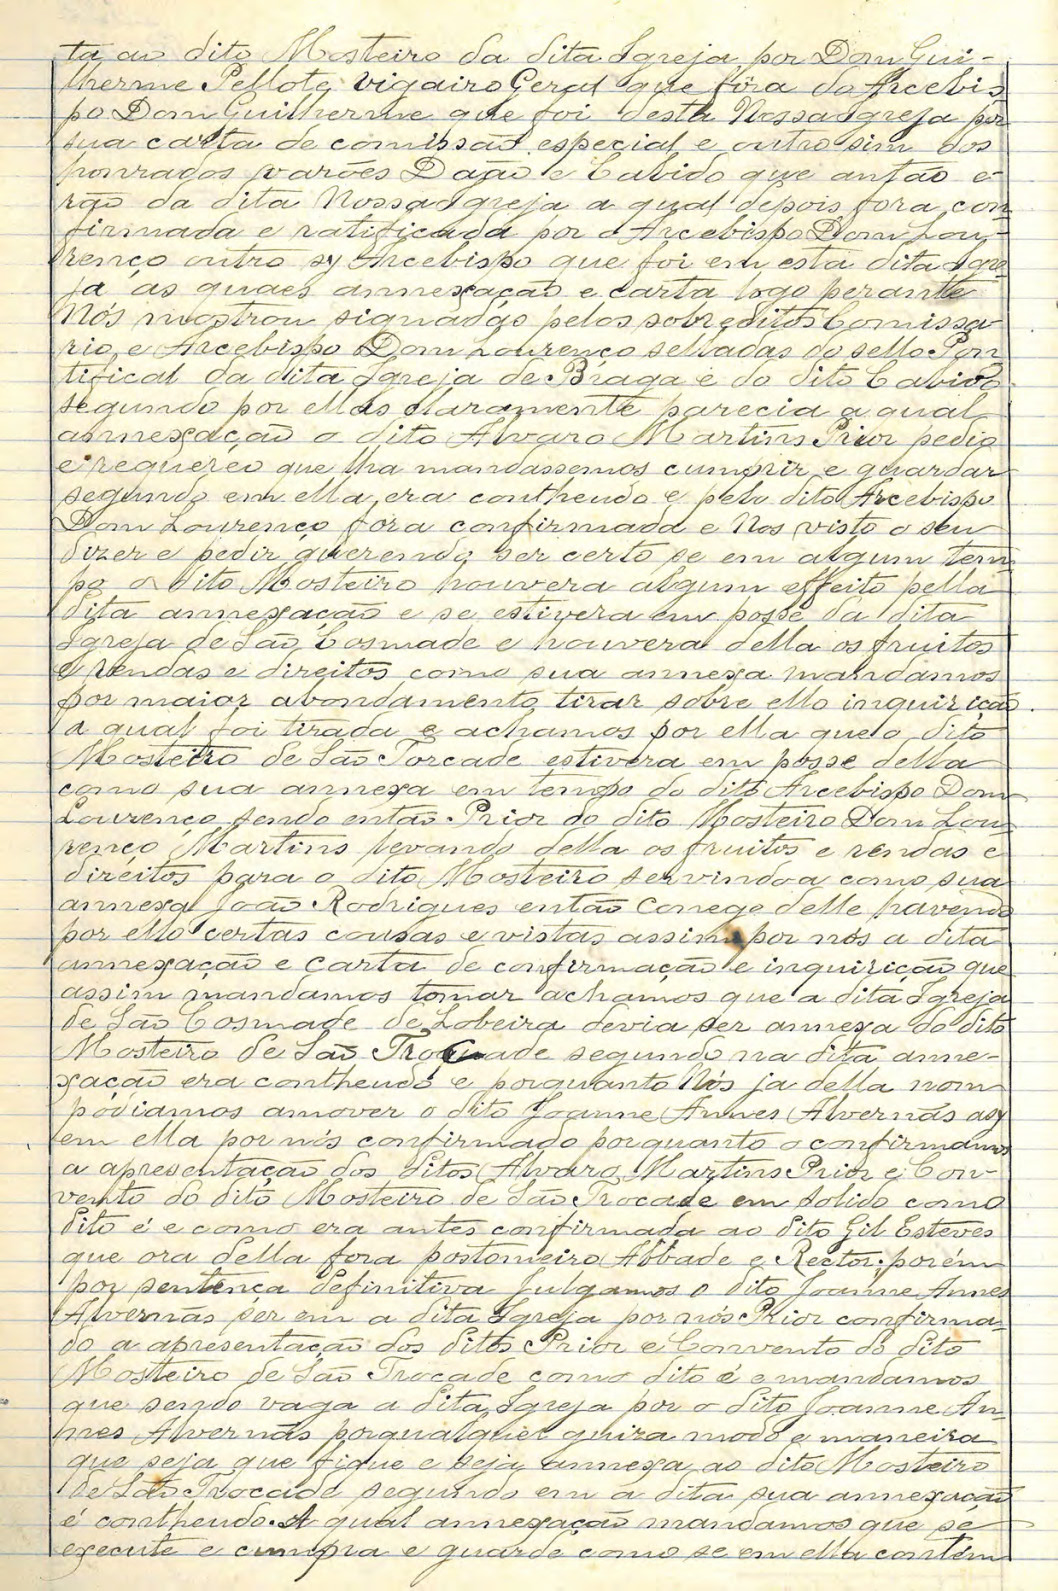 ta ao dito Mosteiro da dita Igreja, por Dom Gui-
lherme Pellote, Vigairo Geral que fôra do Arcebis
po Dom Guilherme que foi desta Nossa Igreja por
sua carta de comissaõ especial e outro sim dos
honrados varões Daão e Cabido que antão e-
rão da dita Nossa Igreja a qual depois fora con
firmada e ratificada por o Arcebispo Dom Lou-
renço outro sy Arcebispo que foi em esta dita Igre
ja as quaes annexação e carta logo perante
Nós mostrou signadas pelos sobreditos Comissa
rio, e Arcebispo Dom Lourenço selladas do sello Pon
tifical da dita Igreja de Braga e do dito Cabido
segundo por ellas claramente parecia a qual
annexação o dito Alvaro Martins Prior pedio
e requereo que lha mandassemos cumprir e guardar
segundo em ella era contheudo e pelo dito Arcebispo
Dom Lourenço fôra confirmada e Nos visto o seu
dizer e pedir querendo ser certo se em algum tem
po o dito Mosteiro houvera algum effeito pella
dita annexação e se estivera em posse da dita
Igreja de São Cosmade e houvera della os fruitos
e rendas e direitos como sua annexa mandamos
por maior abondamento tirar sobre ello inquirição
a qual foi tirada e achamos por ella que o dito
Mosteiro de São Torcade estivera em posse della
como sua annexa em tempo do dito Arcebispo Dom
Lourenço sendo então Prior do dito Mosteiro Dom Lou
renço Martins levando della os fruitos e rendas e
direitos para o dito Mosteiro servindoa como sua
annexa João Rodrigues então Conego delle havendo
por ello certas cousas e vistas assim por nós a dita
annexação e carta de confirmação e inquirição que
assim mandamos tomar achamos que a dita Igreja
de São Cosmade de Lobeira devia ser annexa do dito
Mosteiro de São Trocade segundo na dita anne-
xação era contheudo e porquanto Nós ja della nom
podiamos amover o dito Joanne Annes Alvernás asy
em ella por nós confirmado porquanto o confirmamos
a apresentação dos ditos Alvaro Martins Prior e Con-
vento do dito Mosteiro de São Trocade em solido como
dito é e como era antes confirmada ao dito Gil Esteves
que ora della fora postomeiro Abbade e Rector; porém
por sentença definitiva julgamos o dito Joanne Annes
Alvernás ser em a dita Igreja por nós Prior confirma-
do a apresentação dos ditos Prior e Convento do dito
Mosteiro de São Trocade como dito é e mandamos
que sendo vaga a dita Igreja por o dito Joanne An
nes Alvernás porqualquer guira modo e maneira
que seja que fique e seja annexa ao dito Mosteiro
de São Trocade segundo em a dita sua annexação
é contheudo. A qual annexação mandamos que se
execute e cumpra e guarde como se em ella contém